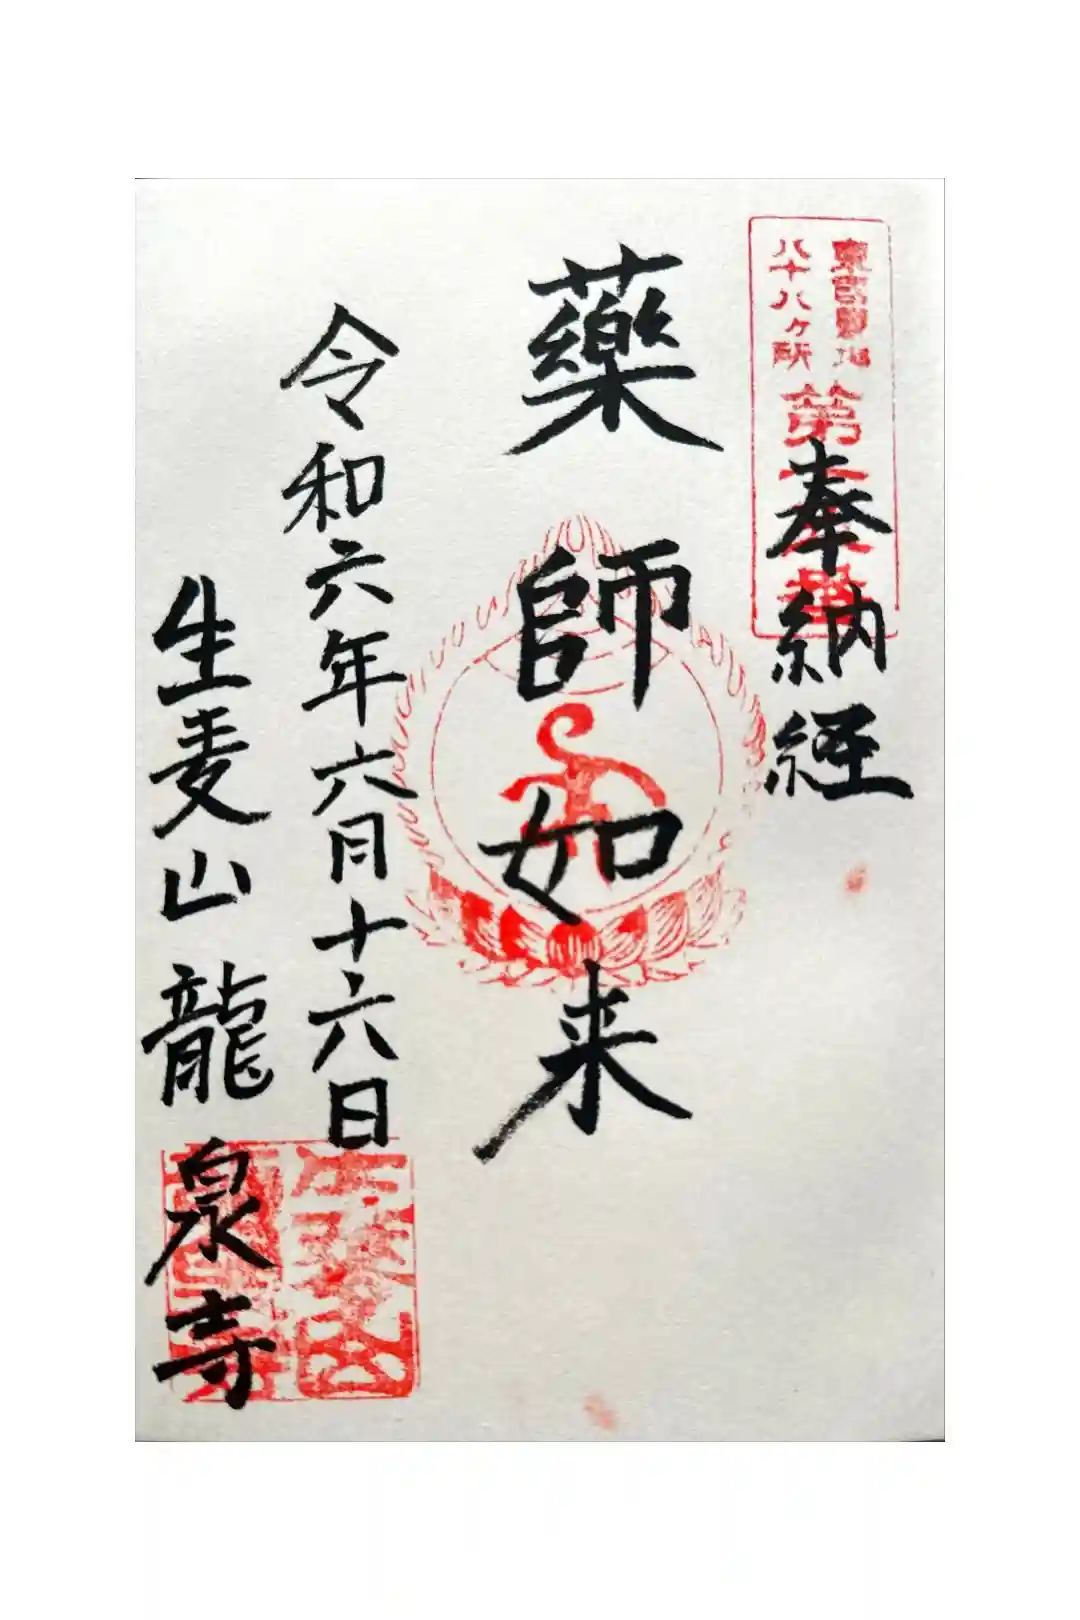 東国霊場
八十八ヶ所
第
奉納経
藥師如来
令和六年六月十六日
生麦山龍泉寺
生麥山